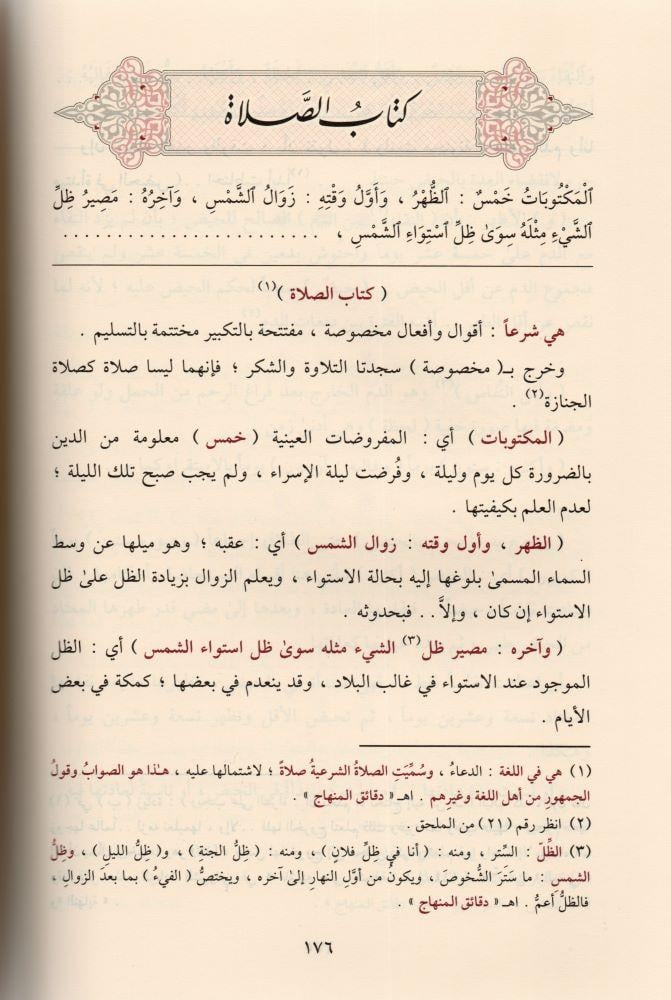 كتابُ الصَّلاة
ٱلْمَكْتُوبَاتُ خَمْسٌ : ٱلظُّهْرُ ، وَأَوَّلُ وَقْتِهِ : زَوَالُ ٱلشَّمْسِ ، وَآخِرُهُ : مَصِيرُ ظِلِّ
ٱلشَّيْءِ مِثْلَهُ سِوَىٰ ظِلِّ ٱسْتِوَاءِ ٱلشَّمْسِ ، . . . . . . . . . . . . . . . . . . . . . . . .
( كتاب الصلاة )(١)
هي شرعاً : أقوال وأفعال مخصوصة ، مفتتحة بالتكبير مختتمة بالتسليم .
وخرج بـ( مخصوصة ) سجدتا التلاوة والشكر ؛ فإنهما ليسا صلاة كصلاة
الجنازة(٢) .
( المكتوبات ) أي : المفروضات العينية ( خمس ) معلومة من الدين
بالضرورة كل يوم وليلة ، وفُرضت ليلة الإسراء ، ولم يجب صبح تلك الليلة ؛
لعدم العلم بكيفيتها .
( الظهر ، وأول وقته : زوال الشمس ) أي : عقبه ؛ وهو ميلها عن وسط
السماء المسمىٰ بلوغها إليه بحالة الاستواء ، ويعلم الزوال بزيادة الظل علىٰ ظل
الاستواء إن كان ، وإلاَّ . . فبحدوثه .
( وآخره : مصير ظل(٣) الشيء مثله سوىٰ ظل استواء الشمس ) أي : الظل
الموجود عند الاستواء في غالب البلاد ، وقد ينعدم في بعضها ؛ كمكة في بعض
الأيام .
(١) هي في اللغة : الدعاءُ ، وسُمِّيَتِ الصلاةُ الشرعيةُ صلاةً ؛ لاشتمالها عليه ، هـٰذا هو الصوابُ وقولُ
الجمهورِ من أهل اللغة وغيرِهم . اهـ « دقائق المنهاج » .
(٢) انظر رقم (٢١) من الملحق .
(٣) الظِّلّ : السِّتر ، ومنه : ( أنا في ظِلِّ فلانٍ ) ، ومنه : ( ظِلُّ الجنةِ ) ، و( ظِلُّ الليلِ ) ، وظِلُّ
الشمسِ : ما سَتَرَ الشُّخوصَ ، ويكونُ من أوَّلِ النهارِ إلىٰ آخره ، ويختصُّ ( الفيءُ ) بما بعدَ الزوالِ ،
فالظلُّ أعمُّ . اهـ « دقائق المنهاج » .
١٧٦